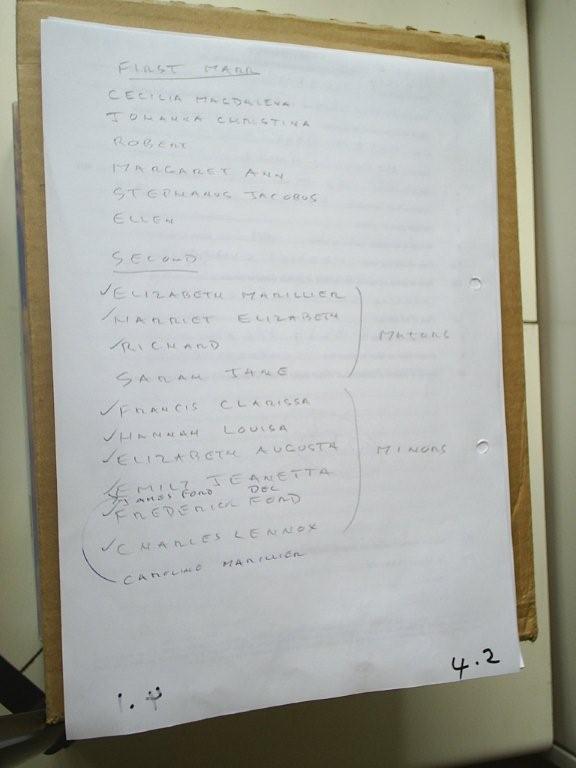 FIRST MARR
CECILIA MAGDALENA
JOHANNA CHRISTINA
ROBERT
MARGARET ANN
STEPHANUS JACOBUS
ELLEN
SECOND
✓ELIZABETH MARILLIER
✓HARRIET ELIZABETH
✓RICHARD
SARAH JANE
MAJORS
✓FRANCIS CLARISSA
✓HANNAH LOUISA
✓ELIZABETH AUGUSTA
✓EMILY JEANETTA
JAMES FORD DEC
✓FREDERICK FORD
✓CHARLES LENNOX
MINORS
CAROLINE MARILLIER
4.2